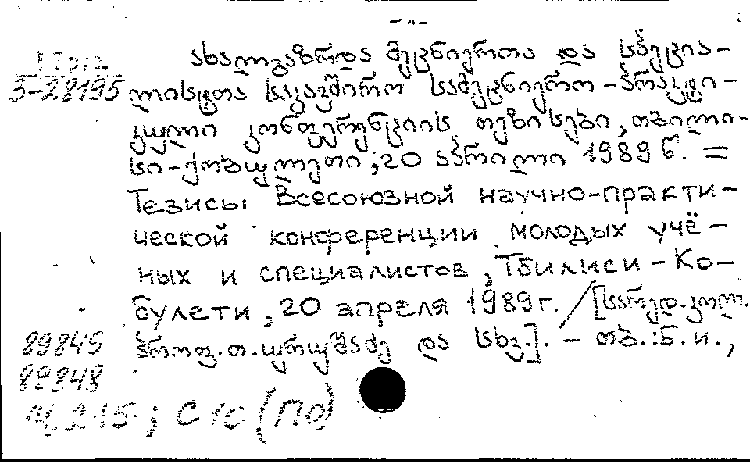 -"-
ახალგაზრდა მეცნიერთა და სპეცია-
ლისტთა საკავშირო სამეცნიერო-პრაქტი-
კული კონფერენციის თეზისები, თბილი-
სი-ქობულეთი, 20 აპრილი 1989 წ. =
Тезисы Всесоюзной научно-практи-
ческой конференции молодых учё-
ных и специалистов, Тбилиси-Ко-
булети, 20 апреля 1989 г. / [სარედ. კოლ.
პროფ. თ. ურუშაძე და სხვ.]. - თბ.: ბ. ი.,
5-28195
89849
89848
215; С 10 (ПО)